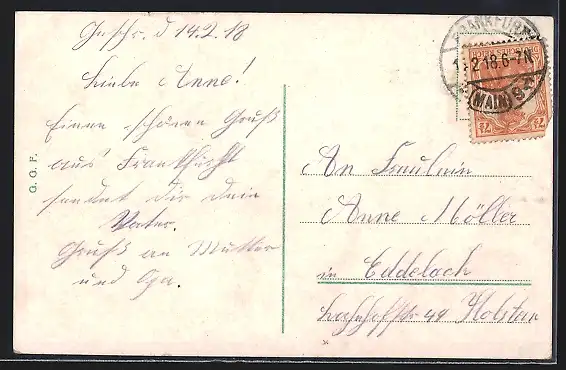 Geschr. d 14.2.18
Liebe Anne!
Einen schönen Gruß
aus Frankfurt
sendet dir dein
Vater.
Gruß an Mutter
und Opa.
G. G. F.
FRANKFURT
2.18.6-7N
(MAIN) 9
DEUTSCHES REICH
7½ 7½
An Fräulein
Anne Möller
in Eddelach
Bahnhofstr 44 Holstein